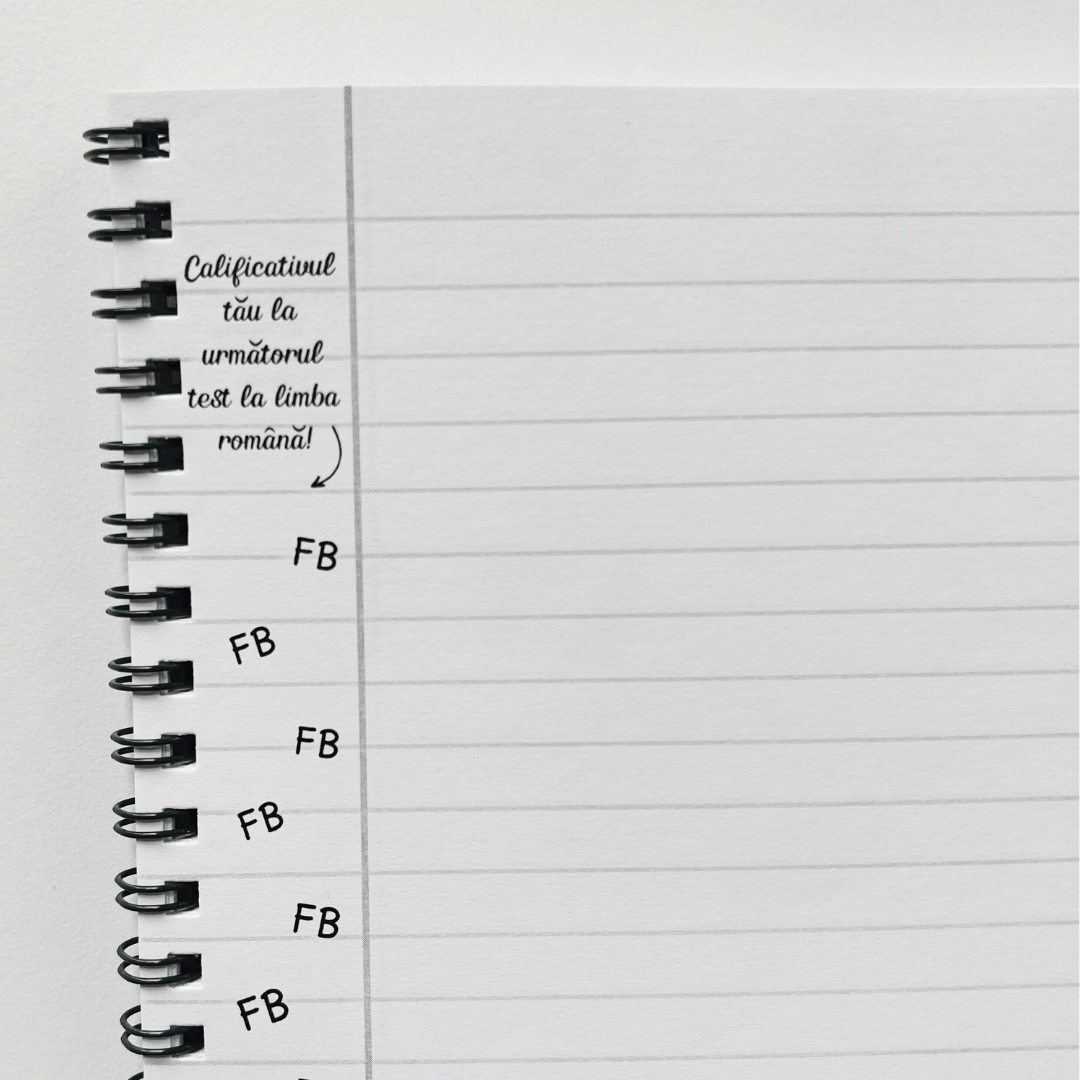 Calificativul
tău la
următorul
test la limba
română!
FB
FB
FB
FB
FB
FB